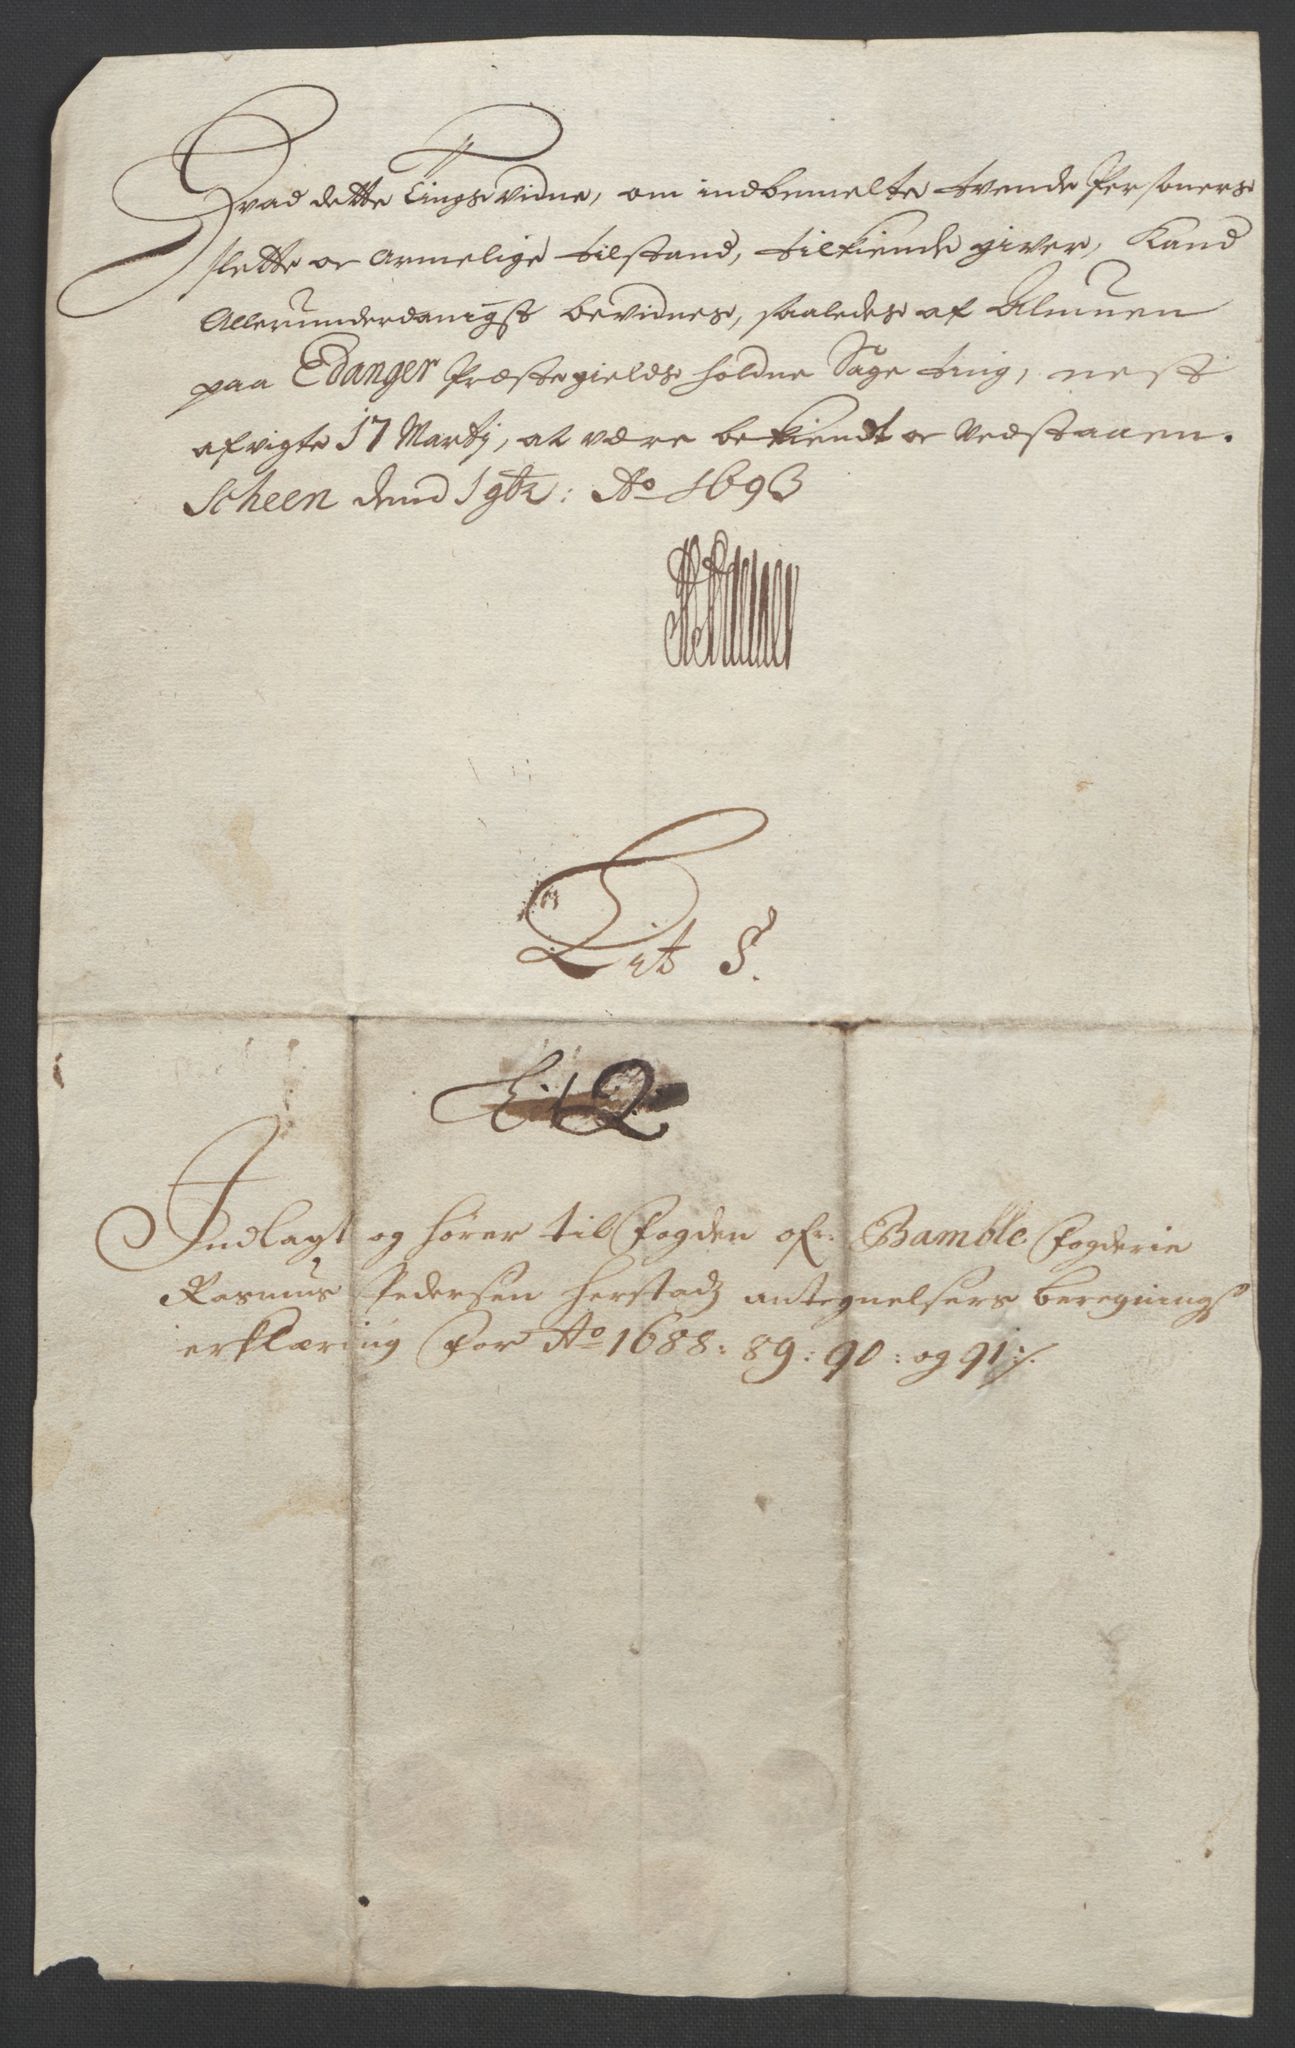 Hvad dette Tings vidne, om indbemelte tvende Persohners
slette oc Armelige tilstand, tilkiende giver, Kand
Allerunderdanigst bevidnes, saaledes af Almuen
paa Edanger Præstegields holdne Sage ting, nest
afvigte 17 Martij, at være bekiendt oc vedstaaen.
Scheen dend 1 9br: Ao 1693
Lit S.
Indlagt og hører til Fogden ofr. Bamble Fogderie
Rasmus Pedersen Herstadz antegnelsers beregnings
erklæring for Ao 1688: 89: 90: og 91 ./.